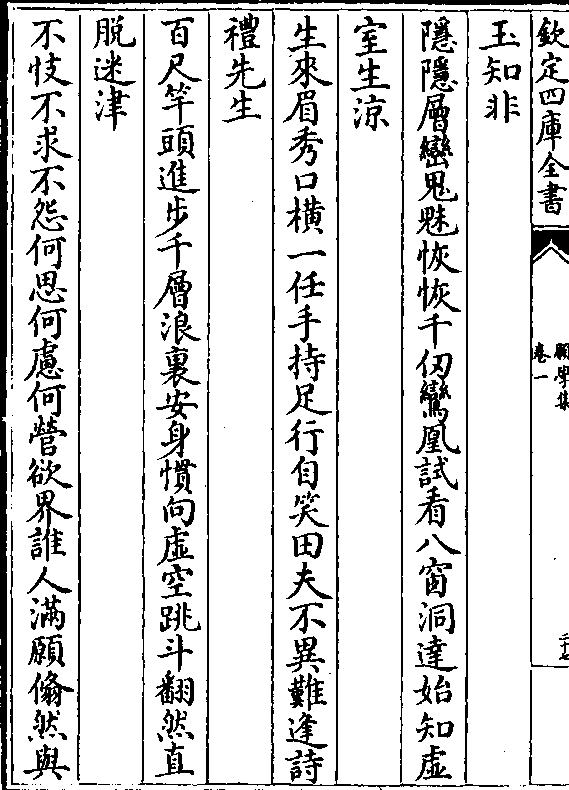 欽定四庫全書
願學集
卷一
二十七
玉知非
隱隱層巒鬼魅恢恢千仞鸞凰試看八窗洞達始知虛
室生涼
生來眉秀口橫一任手持足行自笑田夫不異難逢詩
禮先生
百尺竿頭進步千層浪裏安身慣向虛空跳斗翻然直
脱迷津
不忮不求不怨何思何慮何營欲界誰人滿願翛然與